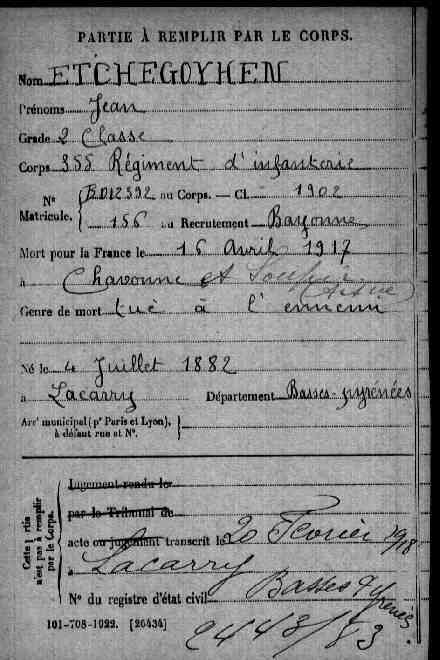 PARTIE À REMPLIR PAR LE CORPS.
Nom ETCHEGOYHEN
Prénoms Jean
Grade 2 Classe
Corps 355 Régiment d'infanterie
N° Matricule. { au Corps. — Cl. 1902
156 au Recrutement Bayonne
Mort pour la France le 16 Avril 1917
à Chavonne et Soupir
(Aisne)
Genre de mort tué à l'ennemi
Né le 4 Juillet 1882
à Lacarry Département Basses-pyrénées
Arr' municipal (p' Paris et Lyon),
à défaut rue et N°.
Cette partie n'est pas à remplir par le Corps.
Jugement rendu le
par le Tribunal de
acte ou jugement transcrit le 20 Fevrier 1918
à Lacarry
Basses Pyrénées
N° du registre d'état civil
101-708-1922. [26434]
2443/83.